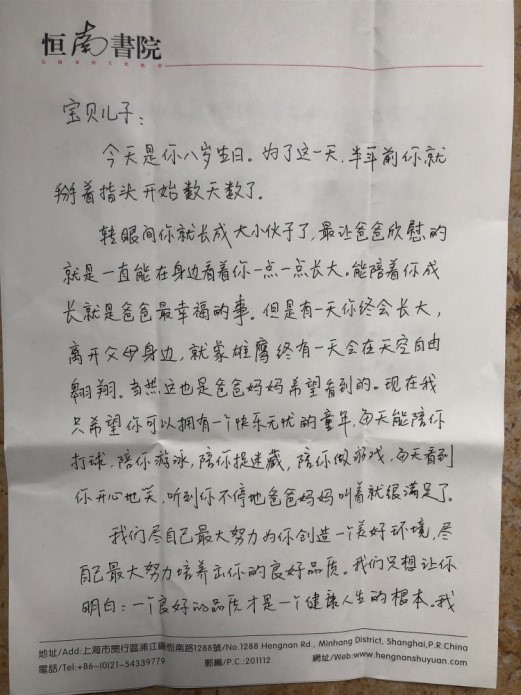 恒南書院
宝贝儿子：
今天是你八岁生日。为了这一天，半年前你就
掰着指头开始数天数了。
转眼间你就长成大小伙子了，最让爸爸欣慰的
就是一直能在身边看着你一点一点长大。能陪着你成
长就是爸爸最幸福的事。但是有一天你终会长大，
离开父母身边，就象雄鹰终有一天会在天空自由
翱翔。当然这也是爸爸妈妈希望看到的。现在我
只希望你可以拥有一个快乐无忧的童年，每天能陪你
打球，陪你游泳，陪你捉迷藏，陪你做游戏，每天看到
你开心地笑，听到你不停地爸爸妈妈叫着就很满足了。
我们尽自己最大努力为你创造一个美好环境，尽
自己最大努力培养出你的良好品质。我们只想让你
明白：一个良好的品质才是一个健康人生的根本。我
地址/Add:上海市閔行區浦江鎮恒南路1288號/No.1288 Hengnan Rd., Minhang District, Shanghai,P.R.China
電話/Tel:+86-(0)21-54339779 郵編/P.C.:201112 網址/Web:www.hengnanshuyuan.com